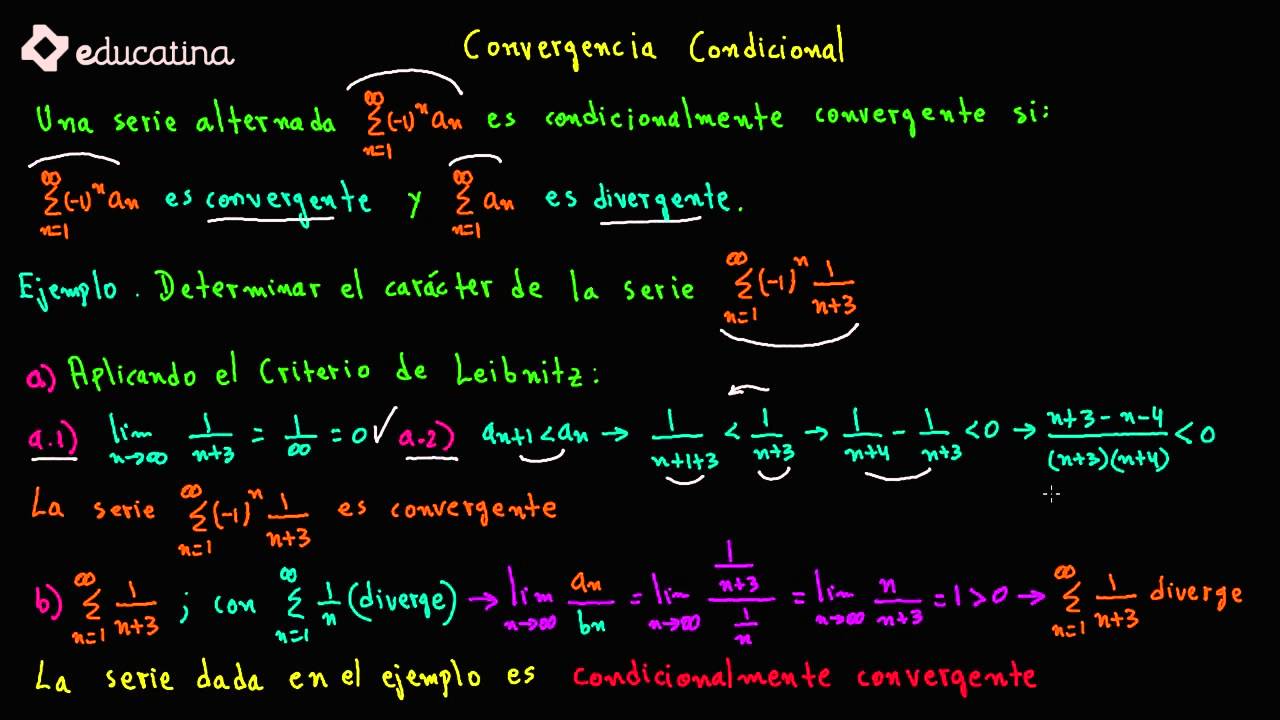 educatina
Convergencia Condicional
Una serie alternada ∑_{n=1}^{∞} (-1)^n an es condicionalmente convergente si:
∑_{n=1}^{∞} (-1)^n an es convergente y ∑_{n=1}^{∞} an es divergente.
Ejemplo. Determinar el carácter de la serie ∑_{n=1}^{∞} (-1)^n 1/(n+3)
a) Aplicando el Criterio de Leibnitz:
a.1) lim_{n→∞} 1/(n+3) = 1/∞ = 0 ✓ a.2) a_{n+1} < an → 1/(n+1+3) < 1/(n+3) → 1/(n+4) - 1/(n+3) < 0 → (n+3-n-4)/((n+3)(n+4)) < 0
La serie ∑_{n=1}^{∞} (-1)^n 1/(n+3) es convergente
b) ∑_{n=1}^{∞} 1/(n+3) ; con ∑_{n=1}^{∞} 1/n (diverge) → lim_{n→∞} an/bn = lim_{n→∞} (1/(n+3))/(1/n) = lim_{n→∞} n/(n+3) = 1 > 0 → ∑_{n=1}^{∞} 1/(n+3) diverge
La serie dada en el ejemplo es condicionalmente convergente